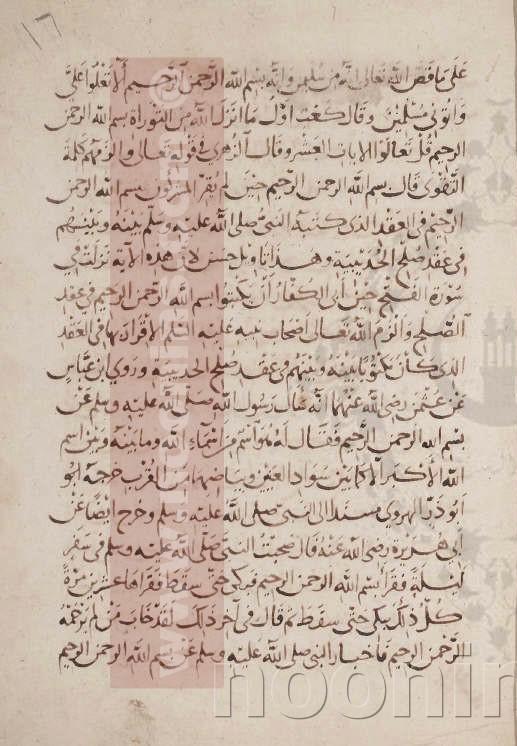 ١٦
على ما قص الله تعالى انه من سليمن وانه بسم الله الرحمن الرحيم ألا تعلوا على
واتوني مسلمين وقال كعب اول ما انزل الله من التوراة بسم الله الرحمن
الرحيم قل تعالوا الايات العشر وقال الزهري في قوله تعالى والزمهم كلمة
التقوى قال بسم الله الرحمن الرحيم حين لم يقر المشركون بسم الله الرحمن
الرحيم في العقد الذي كتبه النبي صلى الله عليه وسلم بينه وبينهم
في عقد صلح الحديبية وهذا تاويل حسن لان هذه الاية نزلت في
سورة الفتح حين أبى الكفار أن يكتبوا بسم الله الرحمن الرحيم في عقد
الصلح والزم الله تعالى اصحاب نبيه عليه السلم الاقرار بها في العقد
الذي كان مكتوبا بينه وبينهم في عقد صلح الحديبية وروي ابن عباس
عن عثمن رضي الله عنهما انه سال رسول الله صلى الله عليه وسلم عن
بسم الله الرحمن الرحيم فقال له هو اسم من اسماء الله وما بينه وبين اسم
الله الأكبر الا كما بين سواد العين وبياضها من القرب خرجه ابو
ابو ذر الهروي مسندا الى النبي صلى الله عليه وسلم وخرج ايضا عن
ابى هريرة رضي الله عنه قال صحبت النبي صلى الله عليه وسلم في سفر
ليلة فقرا بسم الله الرحمن الرحيم فبكى حتى سقط فقراها عشرين مرة
كل ذلك يبكى حتى سقط ثم قال في اخر ذلك لقد خاب من لم يرحمه
الرحمن الرحيم فاخبار النبي صلى الله عليه وسلم عن بسم الله الرحمن الرحيم
noonin